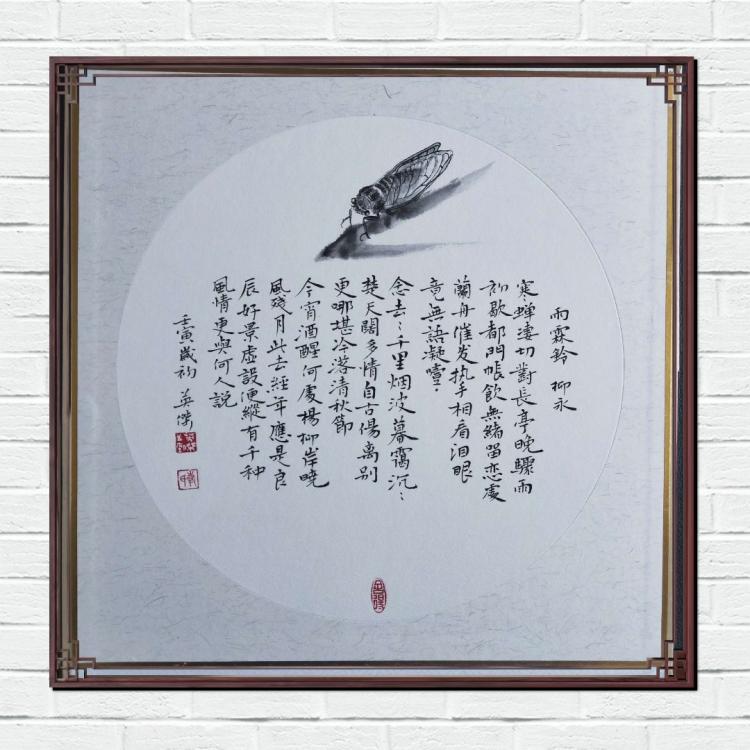 雨霖鈴 柳永
寒蝉凄切對長亭晚驟雨
初歇都門帳飲無緒留恋處
蘭舟催发执手相看泪眼
竟無語凝噎
念去〻千里烟波暮靄沉〻
楚天闊多情自古傷离别
更哪堪冷落清秋節
今宵酒醒何處楊柳岸曉
風殘月此去經年應是良
辰好景虛設便縱有千种
風情更與何人説
壬寅歲初 英傑